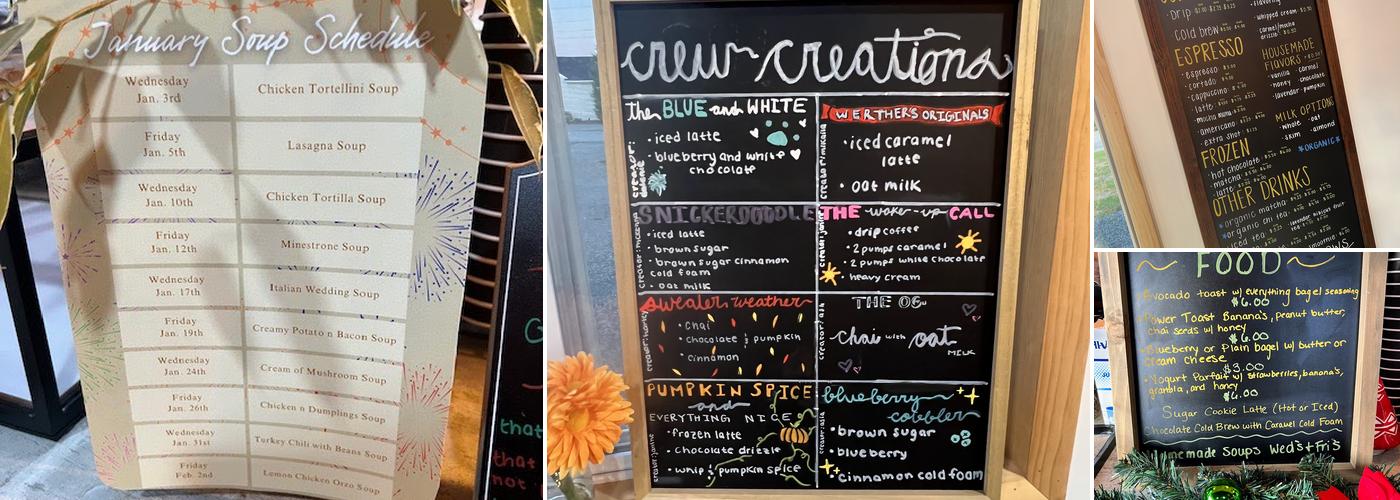 January Soup Schedule
Wednesday
Jan. 3rd
Chicken Tortellini Soup
Friday
Jan. 5th
Lasagna Soup
Wednesday
Jan. 10th
Chicken Tortilla Soup
Friday
Jan. 12th
Minestrone Soup
Wednesday
Jan. 17th
Italian Wedding Soup
Friday
Jan. 19th
Creamy Potato n Bacon Soup
Wednesday
Jan. 24th
Cream of Mushroom Soup
Friday
Jan. 26th
Chicken n Dumplings Soup
Wednesday
Jan. 31st
Turkey Chili with Beans Soup
Friday
Feb. 2nd
Lemon Chicken Orzo Soup
that
not
crew creations
the BLUE and WHITE
• iced latte
• blueberry and white
chocolate
WERTHER'S ORIGINALS
• iced caramel
latte
• oat milk
SNICKERDOODLE
• iced latte
• brown sugar
• brown sugar cinnamon
cold foam
• oat milk
THE wake-up CALL
• drip coffee
• 2 pumps caramel
• 2 pumps white chocolate
• heavy cream
sweater weather
• chai
• chocolate & pumpkin
• cinnamon
THE OG
chai with oat
MILK
PUMPKIN SPICE
and
EVERYTHING NICE
• frozen latte
• chocolate drizzle
• whip & pumpkin spice
blueberry
cobbler
• brown sugar
• blueberry
• cinnamon cold foam
Drip
cold brew
ESPRESSO
• espresso
• cortado
• cappuccino
• latte
• mocha
• americano
• extra shot
FROZEN
• hot chocolate
• matcha
latte
OTHER DRINKS
organic matcha
organic chai tea
iced tea
• whipped cream
carmel/mocha
drizzle
HOUSEMADE
FLAVORS
• vanilla • carmel
• honey • chocolate
• lavender • pumpkin
MILK OPTIONS
• whole • oat
• skim • almond
*ORGANIC*
FOOD
• Avocado toast w/ everything bagel seasoning
$6.00
• Power Toast Banana's, peanut butter,
chai seeds w/ honey
$6.00
• Blueberry or Plain bagel w/ butter or
cream cheese
$3.00
• Yogurt Parfait w/ strawberries, banana's,
granola, and honey
$6.00
Sugar Cookie Latte (Hot or Iced)
Chocolate Cold Brew with Caramel Cold Foam
Homemade Soups Wed's + Fri's